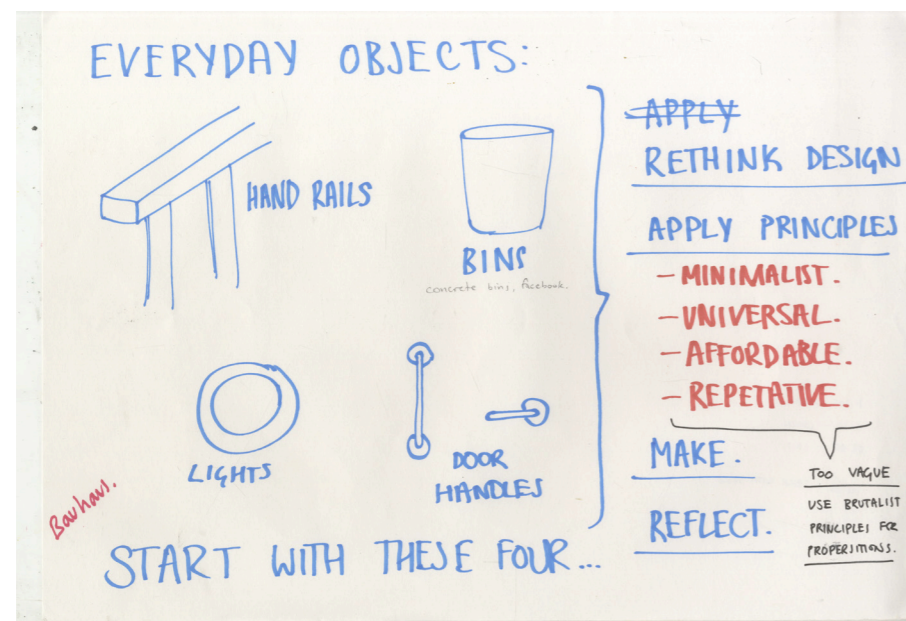 EVERYDAY OBJECTS:
HAND RAILS
BINS
concrete bins, facebook.
LIGHTS
DOOR
HANDLES
Bauhaus.
START WITH THESE FOUR...
APPLY
RETHINK DESIGN
APPLY PRINCIPLES
- MINIMALIST.
- UNIVERSAL.
- AFFORDABLE.
- REPETATIVE.
MAKE.
REFLECT.
TOO VAGUE
USE BRUTALIST
PRINCIPLES FOR
PROPERSITIONS.